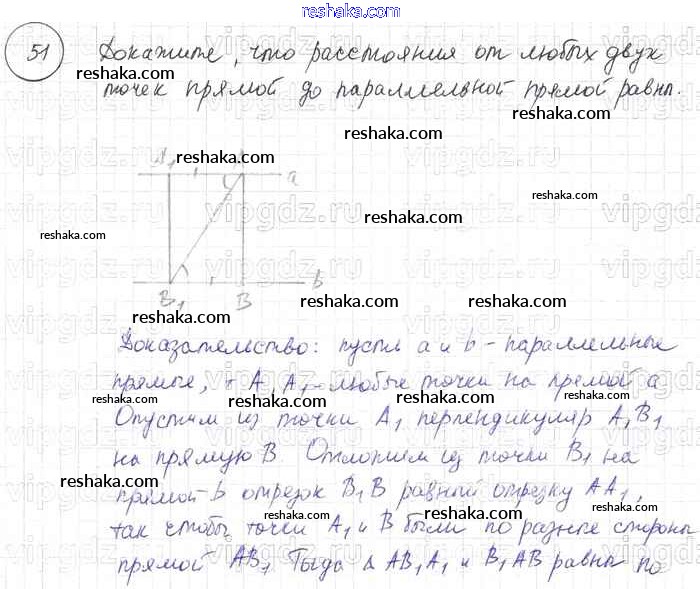 reshaka.com
51 Докажите, что расстояния от любых двух
reshaka.com
точек прямой до параллельной прямой равны.
reshaka.com
vipgdz.ru
A₁ reshaka.com
a
reshaka.com
reshaka.com
reshaka.com
b
B₁ B
reshaka.com
reshaka.com
Доказательство: пусть a и b - параллельные
reshaka.com
прямые, A, A₁ - любые точки на прямой a
reshaka.com
Опустим из точки A₁ перпендикуляр A₁B₁
reshaka.com
на прямую B. Отложим из точки B₁ на
reshaka.com
прямой b отрезок B₁B равный отрезку AA₁,
reshaka.com
reshaka.com
так чтобы точки A₁ и B были по разные стороны
reshaka.com
reshaka.com
прямой AB₁. Тогда Δ AB₁A₁ и B₁AB равны по
reshaka.com